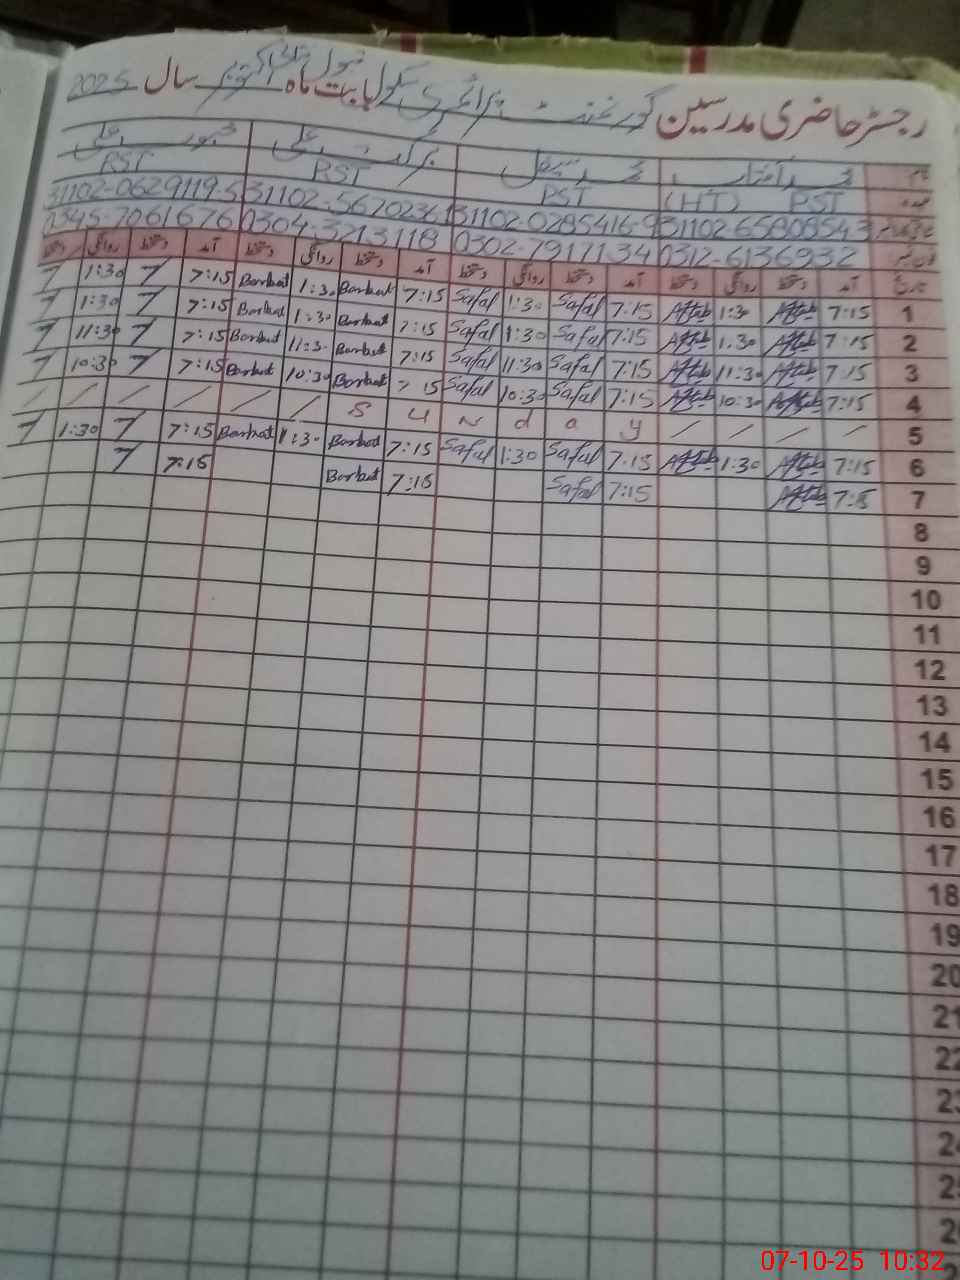 رجسٹر حاضری مدرسین گورنمنٹ پرائمری سکول بابت ماہ اکتوبر سال 2025
نام محمد آفتاب محمد صفل برکت علی ظہور علی
عہدہ PST (HT) PST PST PST
31102-6580854-3 31102-0285416-9 31102-5670236 31102-0629119-5
0312-6136932 0302-7917134 0304-3213118 0345-7061676
تاریخ آمد دستخط روانگی دستخط آمد دستخط روانگی دستخط آمد دستخط روانگی دستخط آمد دستخط روانگی دستخط
1 7:15 Aftab 1:30 Aftab 7:15 Safal 1:30 Safal 7:15 Barkat 1:30 Barkat 7:15 1:30
2 7:15 Aftab 1:30 Aftab 7:15 Safal 1:30 Safal 7:15 Barkat 1:30 Barkat 7:15 1:30
3 7:15 Aftab 11:30 Aftab 7:15 Safal 11:30 Safal 7:15 Barkat 11:30 Barkat 7:15 11:30
4 7:15 Aftab 10:30 Aftab 7:15 Safal 10:30 Safal 7:15 Barkat 10:30 Barkat 7:15 10:30
/ / / / / / S u n d a y / / / / 5
6 7:15 Aftab 1:30 Aftab 7:15 Safal 1:30 Safal 7:15 Barkat 1:30 Barkat 7:15 1:30
7 7:15 Aftab 7:15 Safal 7:15 Barkat 7:15
8
9
10
11
12
13
14
15
16
17
18
19
20
21
22
23
24
25
07-10-25 10:32